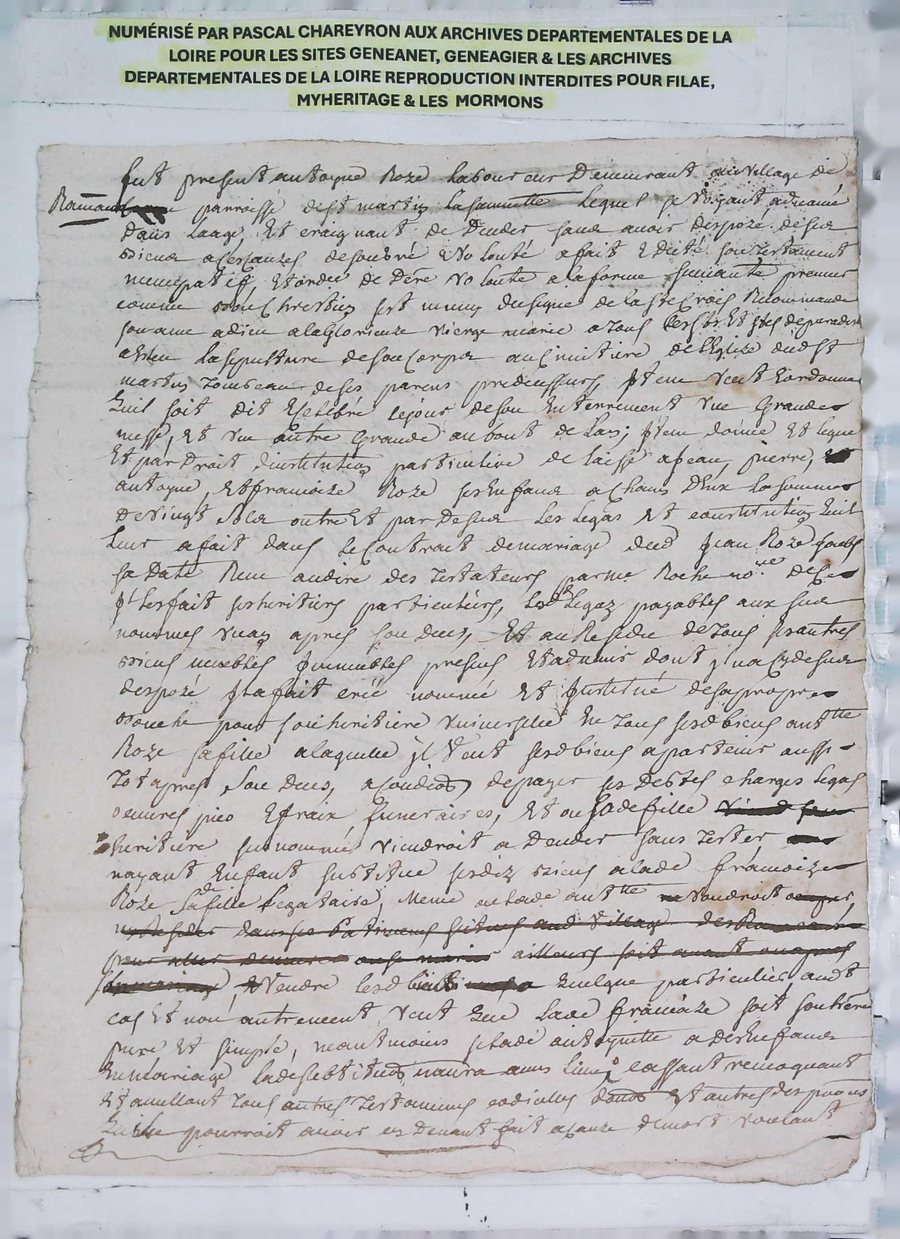 NUMÉRISÉ PAR PASCAL CHAREYRON AUX ARCHIVES DEPARTEMENTALES DE LA
LOIRE POUR LES SITES GENEANET, GENEAGIER & LES ARCHIVES
DEPARTEMENTALES DE LA LOIRE REPRODUCTION INTERDITES POUR FILAE,
MYHERITAGE & LES MORMONS
fut present antoyne Roze Laboureur Demeurant au village de
parroisse de st martin Lasauvette Lequel se voyant advancé
dans Laage, Et craignant de deceder sans avoir desposé de ses
biens a ces causes de son bré volonté a fait Edicté son testament
nuncupatif, Et ordre de dere volonté a la forme suivante premier
comme bon chrestien sest muny du signe de la ste Croix Recommandé
son ame a dieu a la glorieuze vierge marie a tous les sts Et stes de paradis
a esleu La sepulture de son corps au cimitiere de l'Eglise dudt st
martin tombeau de ses parens predecesseurs, Item veut Eordonne
quil soit dit Ecelebré le jour de son Enterrement une Grande
messe, Et une autre Grande au bout de Lan; Item donne Et legue
Et par droit dinstitution particuliere delaisse a jean, pierre,
antoyne, Et francoize Roze ses Enfans a chacun D'eux La somme
de vingt sols outre Et par dessus Les Legas Et constitution quil
Leur a fait dans le contrat de mariage dud jean Roze soubs
sa datte Receu au dire des testateurs par me Roche nore
jl Les fait ses heritiers particuliers, Lesd Legaz payables aux sus
nommes un an apres son deces, Et au Residu de tous ses autres
biens meubles jmmeubles presens Et advenir dont jl na cy dessus
desposé jl a fait créé nommé Et justitué de sa propre
bouche pour son heritiere universelle En tous sesd biens anttte
Roze sa fille a laquelle jl veut sesd biens apartenir aussi
tot apres son deces, a condion de payer ses debtes charges legas
oeuvres pies Efraix funeraires, Et ou sade fille
heritiere sus nommé viendroit a deceder sans tester
nayant Enfant sustitue sesdiz biens a lade francoize
Roze sa de fille Legataire, Meme ou lade anttte voudroit
dans ses batimens scitues aud village
ailleurs soit avant ou apres
vendre lesd biens quelque particulier audt
cas Et non autrement veut que Lade francoize soit son here
pure Et simple, neantmoins si lade antoynette a des Enfans
En mariage ladeste bstituon naura aucun Lieu, cassant revoquant
Et annullant tous autres testamens codicilles dons Et autres dispositions
Quil pourroit avoir cy devant fait a cauze de mort voulant